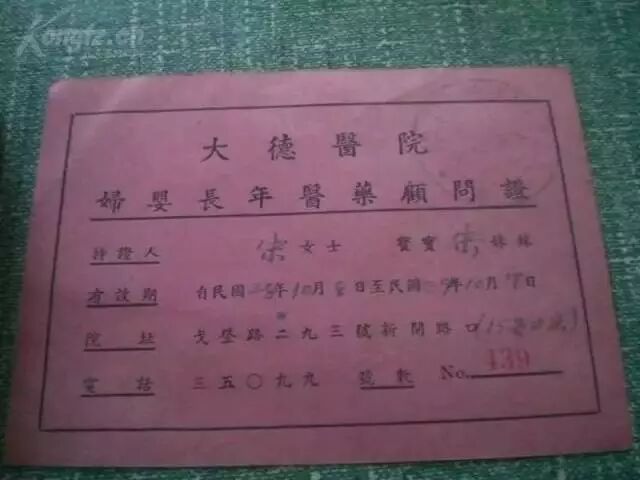 Kongfz.cn
大德醫院
婦嬰長年醫藥顧問證
持證人 宋女士 寶寶 妹妹
有效期 自民國年10月8日至民國年10月日
院址 戈登路二九三號新閘路口
電話 三五〇九九 號數 No. 439